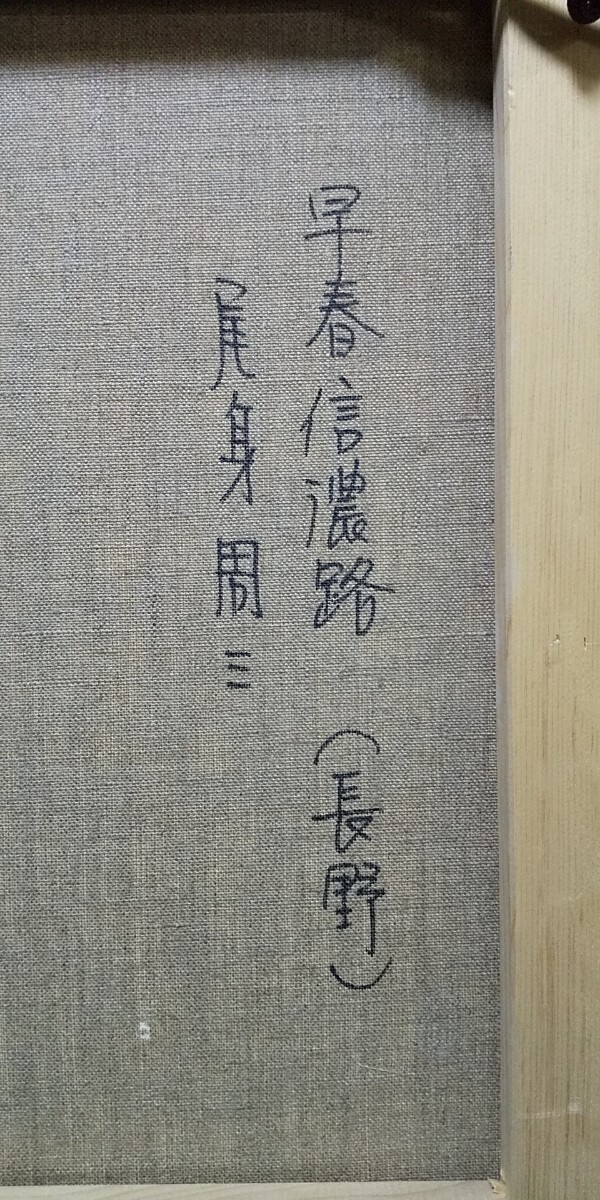 早春信濃路 (長野)
尾身周三